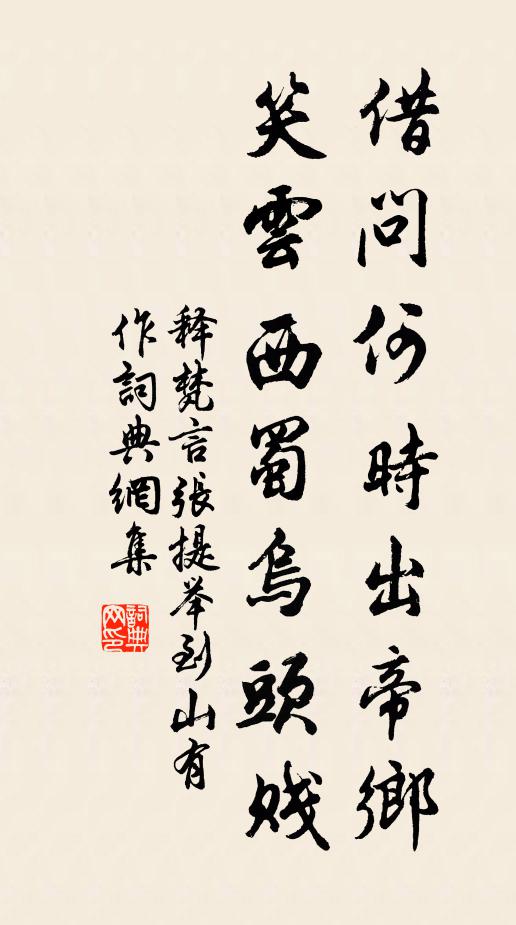 借問何時出帝鄉
笑雲西蜀烏頭賤
释梵言張提举到山有
作詞典網集
詞典
网印